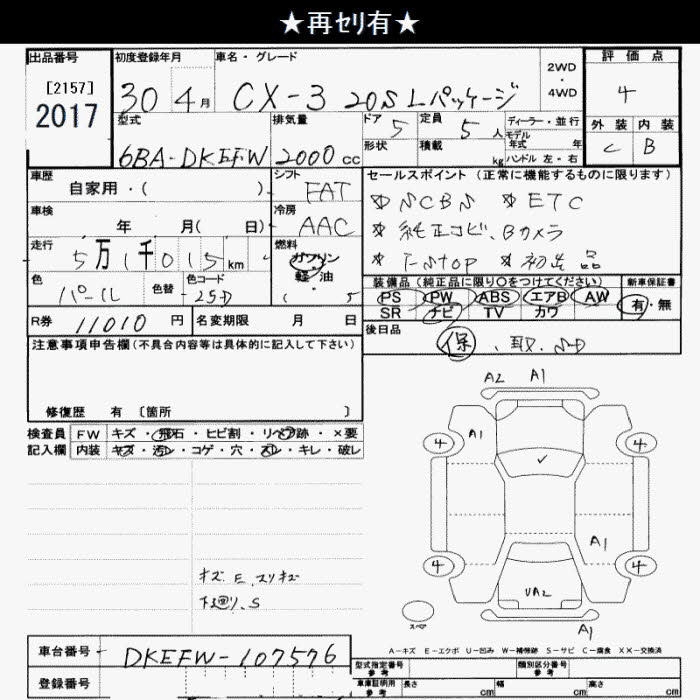 ★再ｾﾘ有★
出品番号
[2157]
2017
初度登録年月
30 4 月
車名・グレード
CX-3 20S Lパッケージ
2WD
・
4WD
評価点
4
外装 内装
C B
型式
6BA-DKEFW
排気量
2000 cc
ドア 5
定員 5 人
ディーラー・並行
モデル
年式 年
形状
積載 kg
ハンドル 左・右
車歴
自家用・( )
シフト
FAT
セールスポイント (正常に機能するものに限ります)
SCBS ETC
純正ナビ、Bカメラ
i-STOP 初出品
車検
年 月( 日)
冷房
AAC
走行
5万1千015km
燃料
ガソリン
軽・油
( 5
色
パール
色替
色コード
25D
装備品 (純正品に限り○をつけてください)
PS PW ABS エアB AW
SR ナビ TV カワ
新車保証書
有・無
R券 11010 円
名変期限 月 日
後日品
保、取、SD
注意事項申告欄 (不具合内容等は具体的に記入して下さい)
修復歴 有 〔箇所 〕
検査員 FW キズ・飛石・ヒビ割・リペア跡・×要
記入欄 内装 キズ・汚レ・コゲ・穴・スレ・キレ・破レ
キズ、E、スリキズ
下廻り、S
A2 A1
A1
4 4
A1
4 4
UA2
A1
スペア
A-キズ E-エクボ U-凹み W-補修跡 S-サビ C-腐食 XX-交換済
車台番号 DKEFW-107576
登録番号
型式指定番号
参考
類別区分番号
参考
車庫証明用
参考
長さ cm 幅 cm 高さ cm